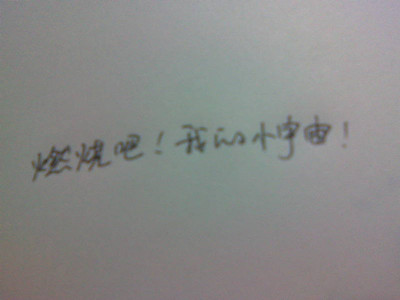 燃烧吧！我的小宇宙！